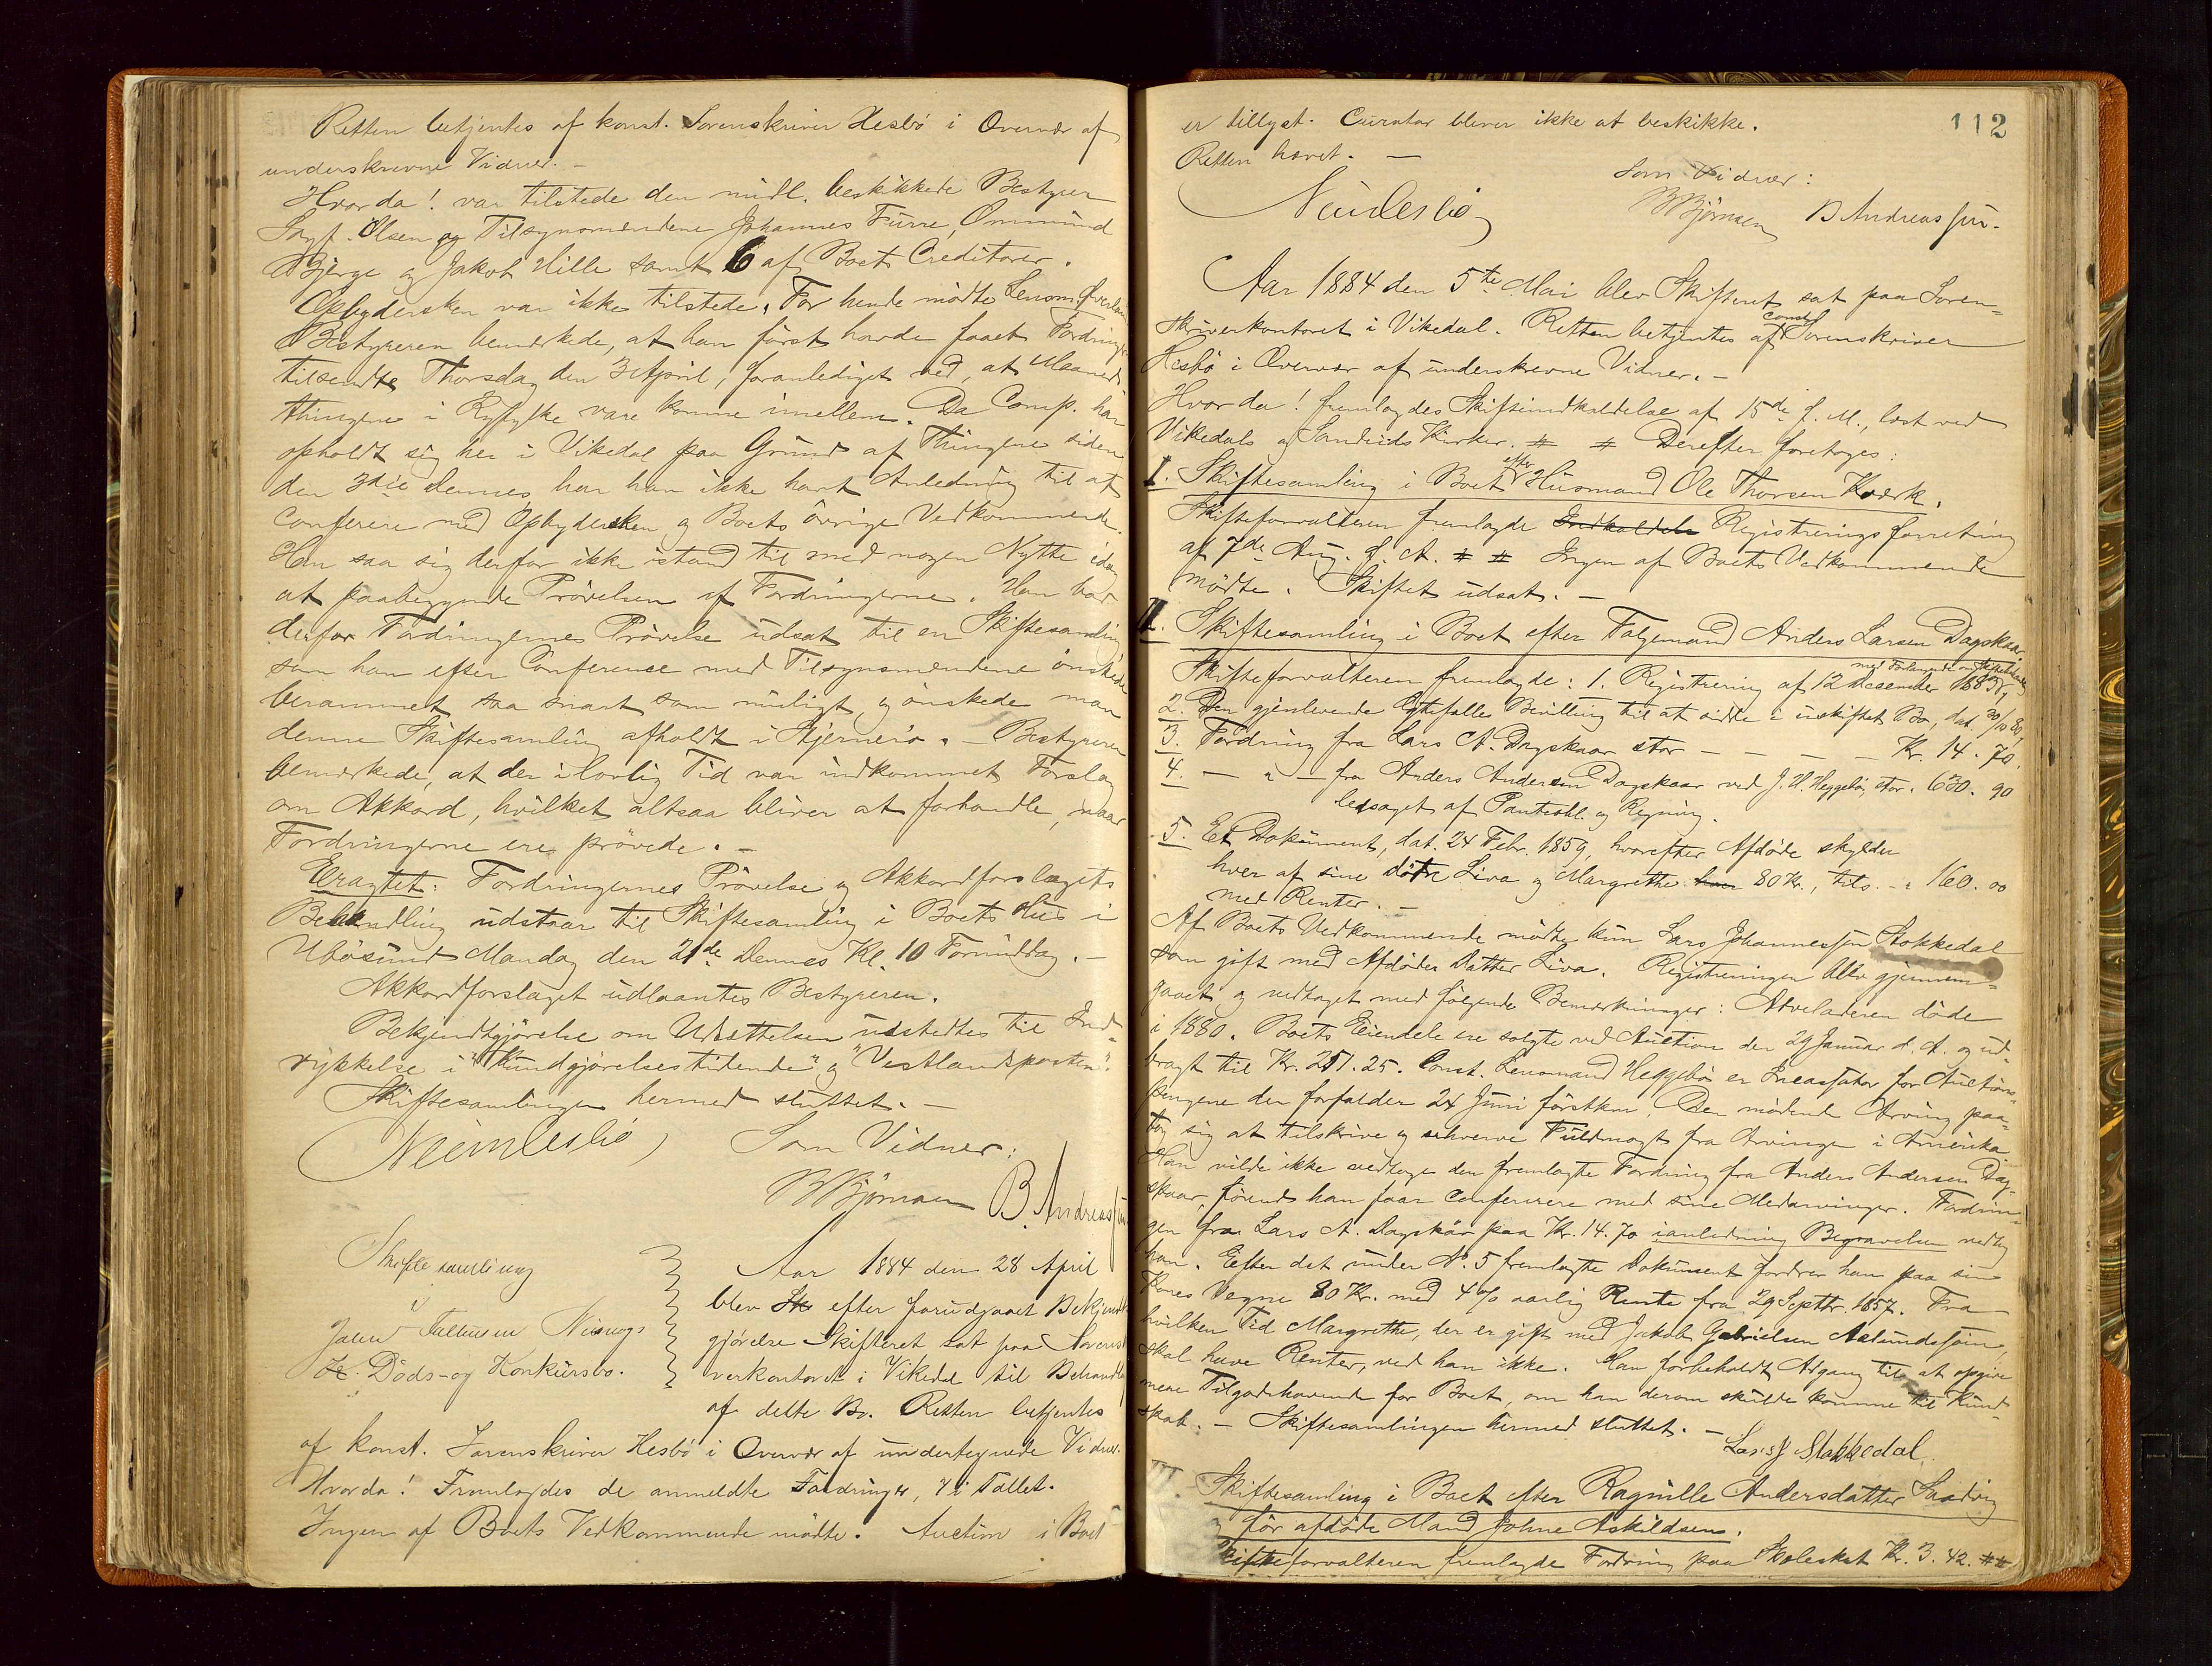 Retten betjentes af konst. Sorenskriver Hesbö i Overvær af
underskrevne Vidner. –
Hvorda! var tilstede den midl. beskikkede Bestyrer
Sagf. Olsen og Tilsynsmændene Johannes Furre, Ommund
Bjerge og Jakob Hille samt 6 af Boets Creditorer.
Opbydersken var ikke tilstede. For hende mödte Lensm.
Bestyreren bemærkede, at han först havde faaet Fordringer
tilsendte Thorsdag den 3 April, foranlediget ved, at Maaneds
thingene i Ryfylke vare komne imellem. Da Comp. har
opholdt sig her i Vikedal paa Grund af Thingene siden
den 3die dennes har han ikke havt Anledning til at
conferere med Opbydersken og Boets övrige Vedkommende.
Han saa sig derfor ikke istand til med nogen Nytte idag
at paabegynde Prövelsen af Fordringerne. Han bad
derfor Fordringernes Prövelse udsat til en Skiftesamling
som han efter Conference med Tilsynsmændene önskede
berammet saa snart som muligt, og önskede man
denne Skiftesamling afholdt i Hjernerö. – Bestyreren
bemærkede, at der i lovlig Tid var indkommet Forslag
om Akkord, hvilket altsaa bliver at forhandle, naar
Fordringerne ere prövede. –
Eragtet: Fordringernes Prövelse og Akkordforslagets
Behandling udstaar til Skiftesamling i Boets Hus i
Ubösund Mandag den 21de dennes Kl. 10 Formiddag. –
Akkordforslaget udlaantes Bestyreren.
Bekjendtgjörelse om Udsættelsen udstedtes til Ind-
rykkelse i "Kundgjörelsestidende" og "Vestlandsposten".
Skiftesamlingen hermed sluttet. –
Som Vidner:
BBjörnsen B. Andreassen
Skiftesamling
i
Fallensen
Döds- og Konkursbo.
Aar 1884 den 28 April
blev Sk efter forudgaaet Bekjendt
gjörelse Skifteret sat paa Sorenskri
verkontoret i Vikedal til Behandling
af dette Bo. Retten betjentes
af konst. Sorenskriver Hesbö i Overvær af undertegnede Vidner.
Hvorda! Fremlagdes de anmeldte Fordringer, 7 i Tallet.
Ingen af Boets Vedkommende mödte. Auction i Boet
112
er tillyst. Curator bliver ikke at beskikke.
Retten hævet. –
Som Vidner:
BBjörnsen B Andreassen.
Aar 1884 den 5te Mai blev Skifteret sat paa Soren-
skriverkontoret i Vikedal. Retten betjentes af const. Sorenskriver
Hesbö i Overvær af underskrevne Vidner. –
Hvorda! fremlagdes Skifteindkaldelse af 15de f. M., læst ved
Vikedals og Sandeids Kirker. # # Derefter foretoges:
I. Skiftesamling i Boet efter Husmand Ole Thorsen Kværk.
Skifteforvalteren fremlagde Indkaldels Registreringsforretning
af 7de Aug. f. A. # # Ingen af Boets Vedkommende
mödte. Skiftet udsat. –
II. Skiftesamling i Boet efter Folgemand Anders Larsen Dagskaar.
Skifteforvalteren fremlagde: 1. Registrering af 12 December 1883,
2. Den gjenlevende Ægtefælles Bevilling til at sidde i uskiftet Bo, dat. 30/10 80,
3. Fordring fra Lars A. Dagskaar stor – – – – Kr. 14. 70.
4. – " – fra Anders Andersen Dagskaar ved J. H. Heggebö, stor " 630. 90
ledsaget af Panteobl. og Regning.
5. Et Dokument, dat. 24 Febr. 1859, hvorefter Afdöde skylder
hver af sine dötre Siva og Margrethe 80 Kr., tils. – " 160. 00
med Renter. –
Af Boets Vedkommende mödte kun Lars Johannessen Stokkedal
som gift med Afdödes Datter Siva. Registreringen blev gjennem-
gaaet og vedtaget med fölgende Bemærkninger: Arveladeren döde
i 1880. Boets Eiendele ere solgte ved Auction den 29 Januar d. A. og ud-
bragt til Kr. 251. 25. Const. Lensmand Heggebö er Incassator for Auctions-
pengene der forfalder 24 Juni förstkm. Den mödende Arving paa-
tog sig at tilskrive og erhverve Fuldmagt fra Arvinger i Amerika.
Han vilde ikke vedtage den fremlagte Fordring fra Anders Andersen Dag-
skaar, förend han faar conferere med sine Medarvinger. Fordrin-
gen fra Lars A. Dagskaar paa Kr. 14. 70 ianledning Begravelsen vedtog
han. Efter det under No. 5 fremlagte Dokument fordrer han paa sin
Kones Vegne 80 Kr. med 4% aarlig Rente fra 29 Septbr. 1857. Fra
hvilken Tid Margrethe, der er gift med Jakob Gabrielsen
skal have Renter, ved han ikke. Han forbeholdt Adgang til at opgive
mere Tilgodehavende for Boet, om han derom skulde komme til Kund-
skab. – Skiftesamlingen hermed sluttet. –
Lars J Stakkedal.
Skiftesamling i Boet efter Ragnille Andersdatter Sandvig
og för afdöde Mand Johne Askildsen.
Skifteforvalteren fremlagde Fordring paa Skoleskat Kr. 3. 42. # #